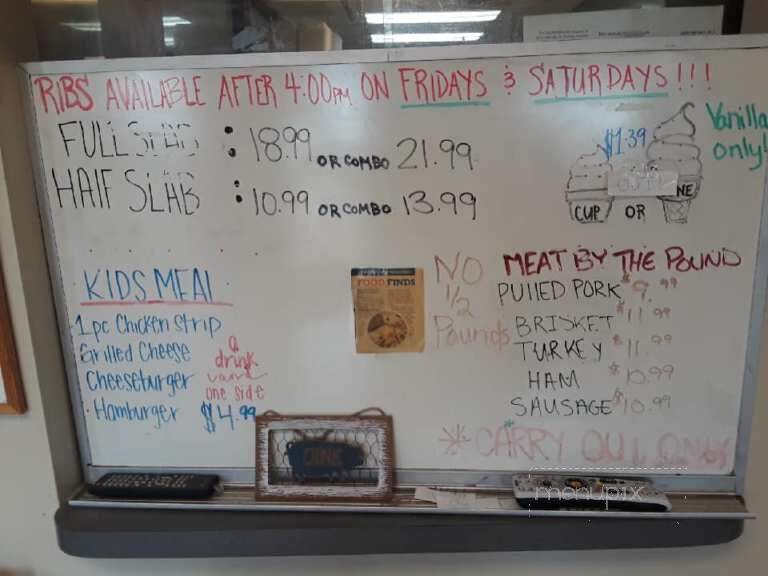 RIBS AVAILABLE AFTER 4:00PM ON FRIDAYS & SATURDAYS!!!
FULL SLAB : 18.99 OR COMBO 21.99
HALF SLAB : 10.99 OR COMBO 13.99
$1.39
Vanilla
only!
CUP OR
NE
KIDS MEAL
1pc Chicken Strip
Grilled Cheese
Cheeseburger
Hamburger $4.99
a
drink
one side
FOOD FINDS
NO
1/2
Pounds
MEAT BY THE POUND
PULLED PORK $9.99
BRISKET $11.99
TURKEY $11.99
HAM $10.99
SAUSAGE $10.99
* CARRY OUT ONLY
OINK
menupix